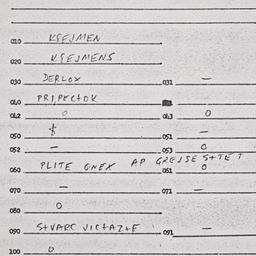 010 KREJMEN
020 KREJMENS
030 DERLOX 031 —
040 PRIPECTOK
042 0 043 0
050 $ 051 —
052 — 053 0
060 PLITE ONEX AP GREJSE STTE T 061 0
070 — 071 —
080 0
090 STVARC VICTAZTE 091 —
100 0